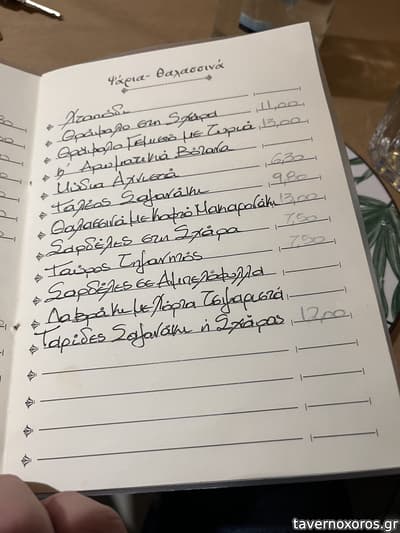 Ψάρια - Θαλασσινά
Χταπόδι
Θράψαλο στη Σχάρα 11,00
Θράψαλο Γεμιστό με Τυριά 13,00
& Αρωματικά Βότανα
Μύδια Αχνιστά 6,30
Γαύρος Σαγανάκι 9,80
Θαλασσινά με Κοφτό Μακαρονάκι 13,00
Σαρδέλες στη Σχάρα 7,50
Γαύρος Τηγανητός 7,50
Σαρδέλες σε Αμπελόφυλλα
Λαβράκι με Χόρτα Τσιγαριστά
Γαρίδες Σαγανάκι ή Σχάρας 12,00
tavernoxoros.gr